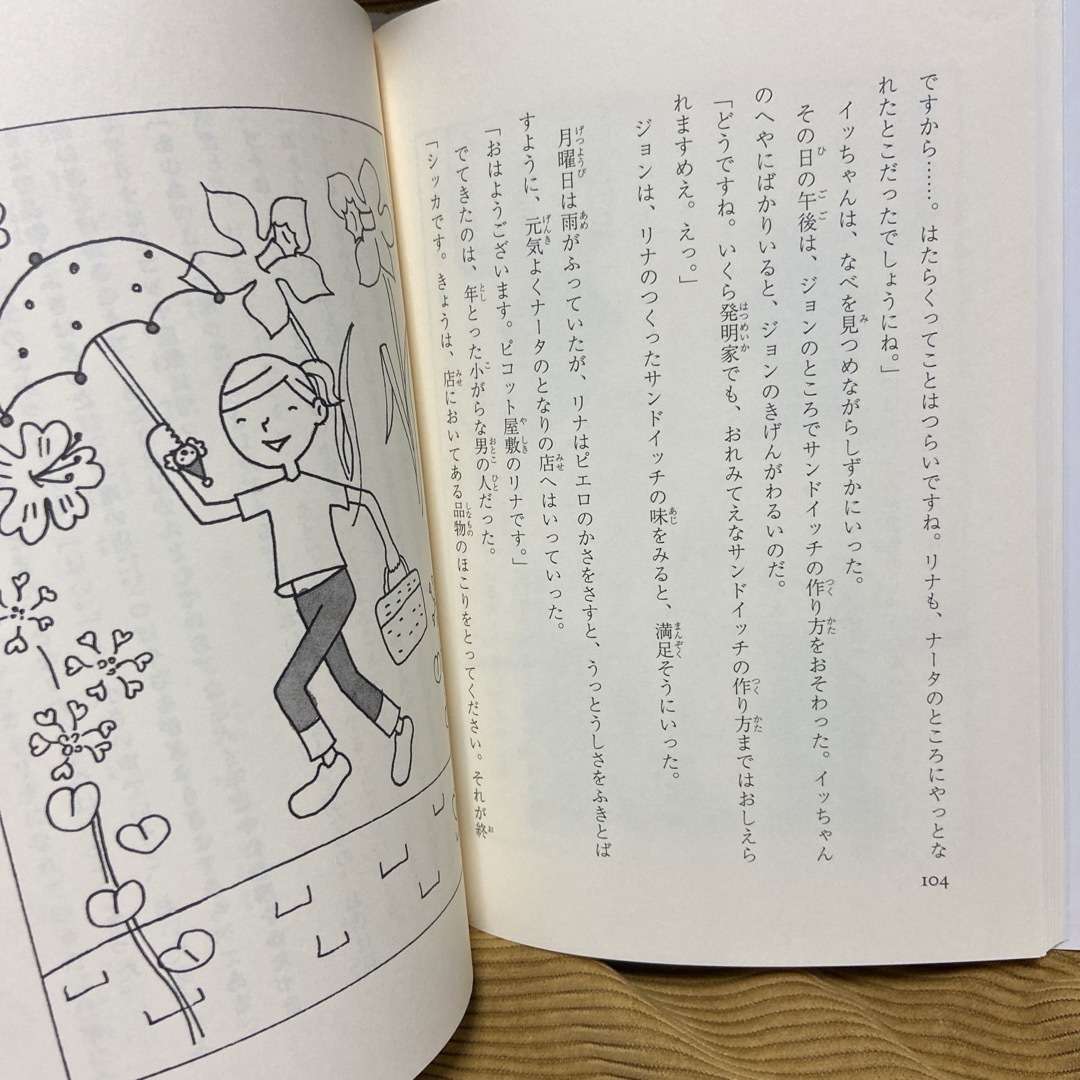 ですから……。はたらくってことはつらいですね。リナも、ナータのところにやっとな
れたとこだったでしょうにね。」
イッちゃんは、なべを見つめながらしずかにいった。
その日の午後は、ジョンのところでサンドイッチの作り方をおそわった。イッちゃん
のへやにばかりいると、ジョンのきげんがわるいのだ。
「どうですね。いくら発明家でも、おれみてえなサンドイッチの作り方まではおしえら
れますめえ。えっ。」
ジョンは、リナのつくったサンドイッチの味をみると、満足そうにいった。
月曜日は雨がふっていたが、リナはピエロのかさをさすと、うっとうしさをふきとば
すように、元気よくナータのとなりの店へはいっていった。
「おはようございます。ピコット屋敷のリナです。」
でてきたのは、年とった小がらな男の人だった。
「シッカです。きょうは、店においてある品物のほこりをとってください。それが終
104